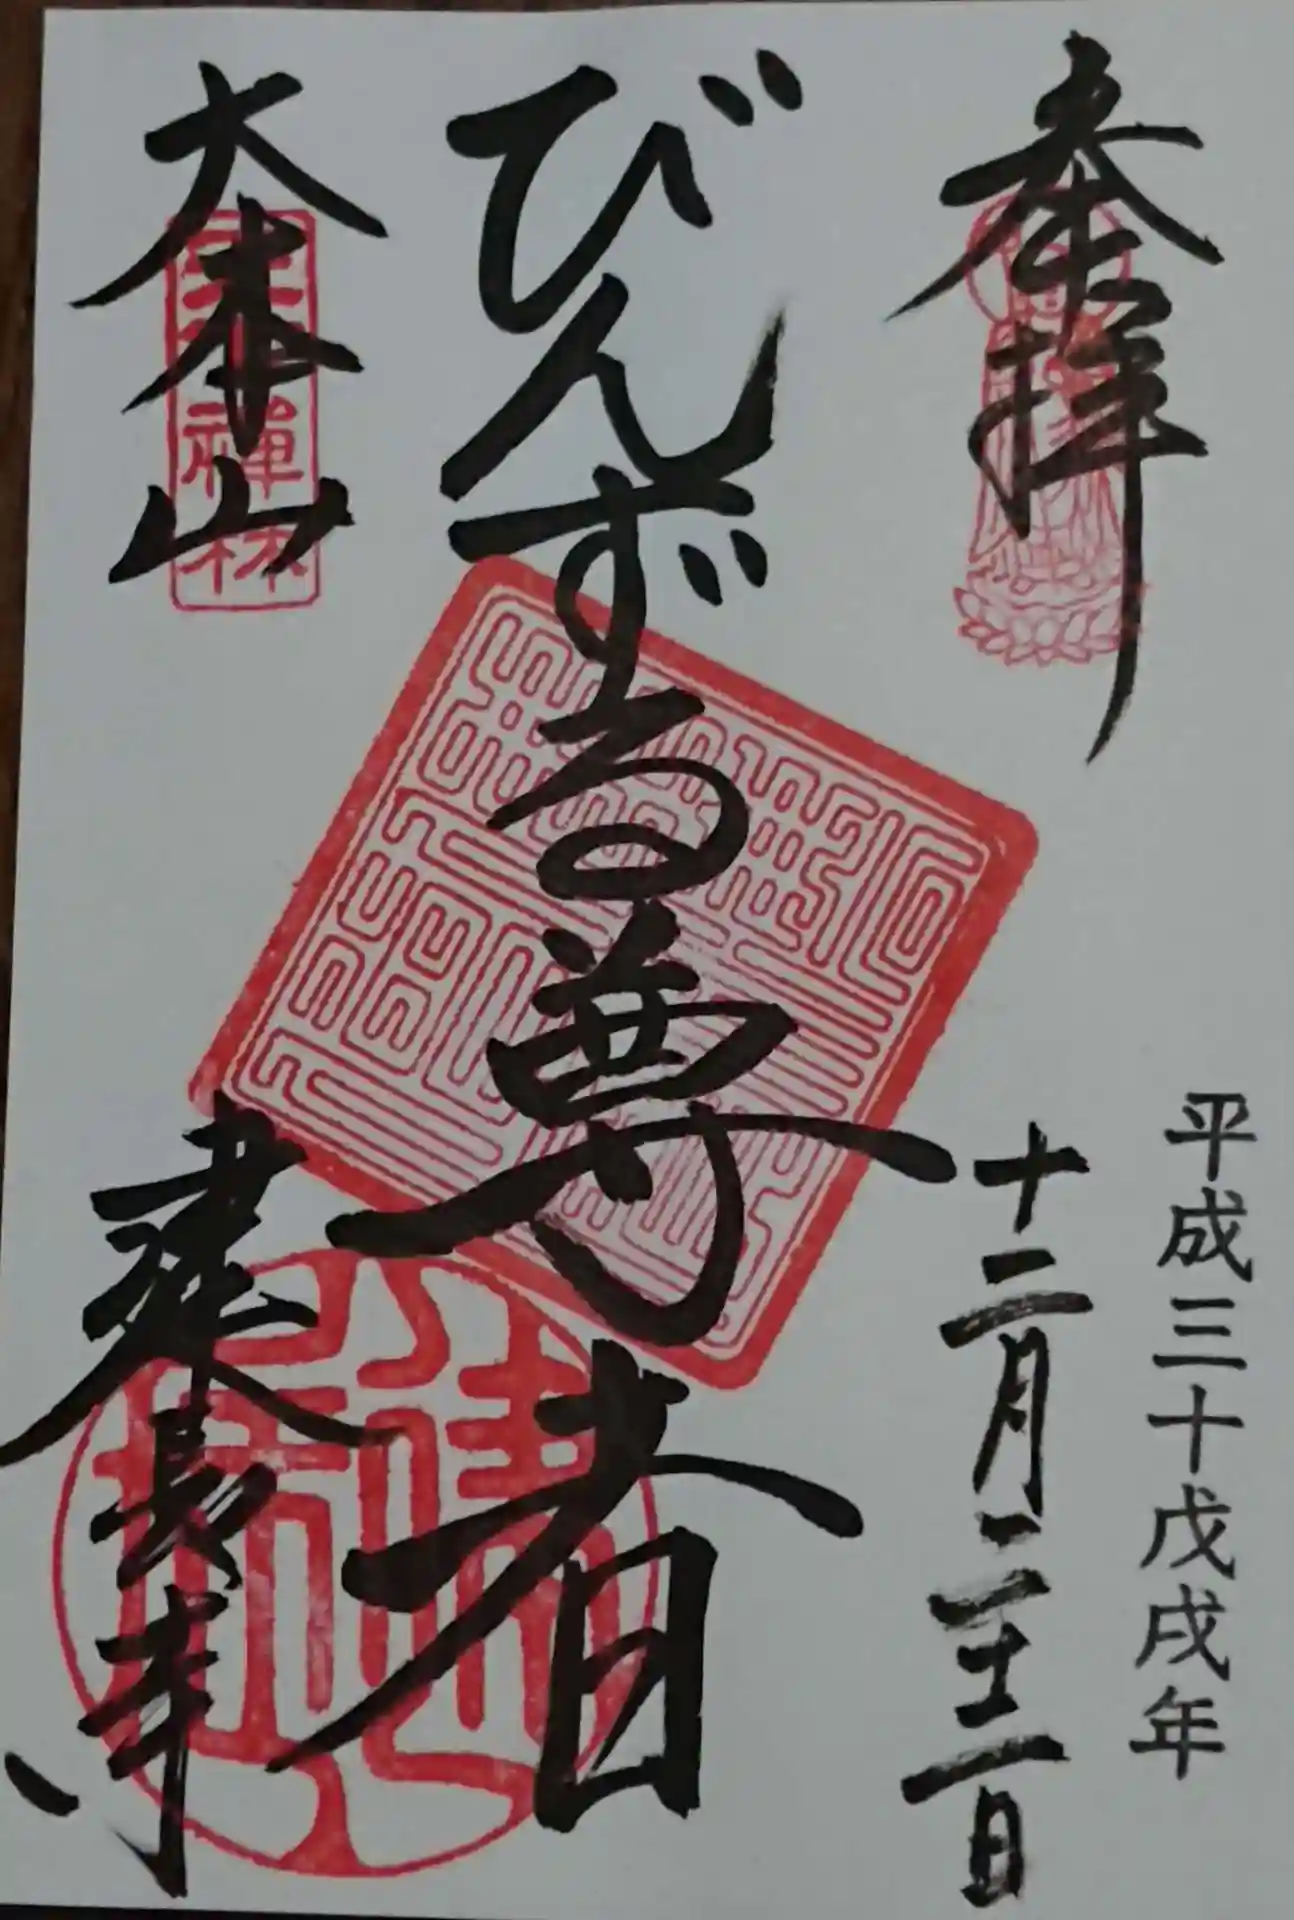 奉拝
平成三十戊戌年
十二月二十二日
びんずる尊者
大本山
建長寺
禪林